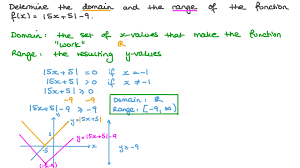 Determine the domain and the range of the function
f(x) = |5x+5| - 9.
Domain: the set of x-values that make the function
"work" ℝ
Range: the resulting y-values
|5x+5| = 0 if x = -1
|5x+5| > 0 if x ≠ -1
|5x+5| ≥ 0
-9 -9
|5x+5| - 9 ≥ -9
Domain: ℝ
Range: [-9, ∞)
y
y=|5x+5|
y=|5x+5|-9
x
y ≥ -9